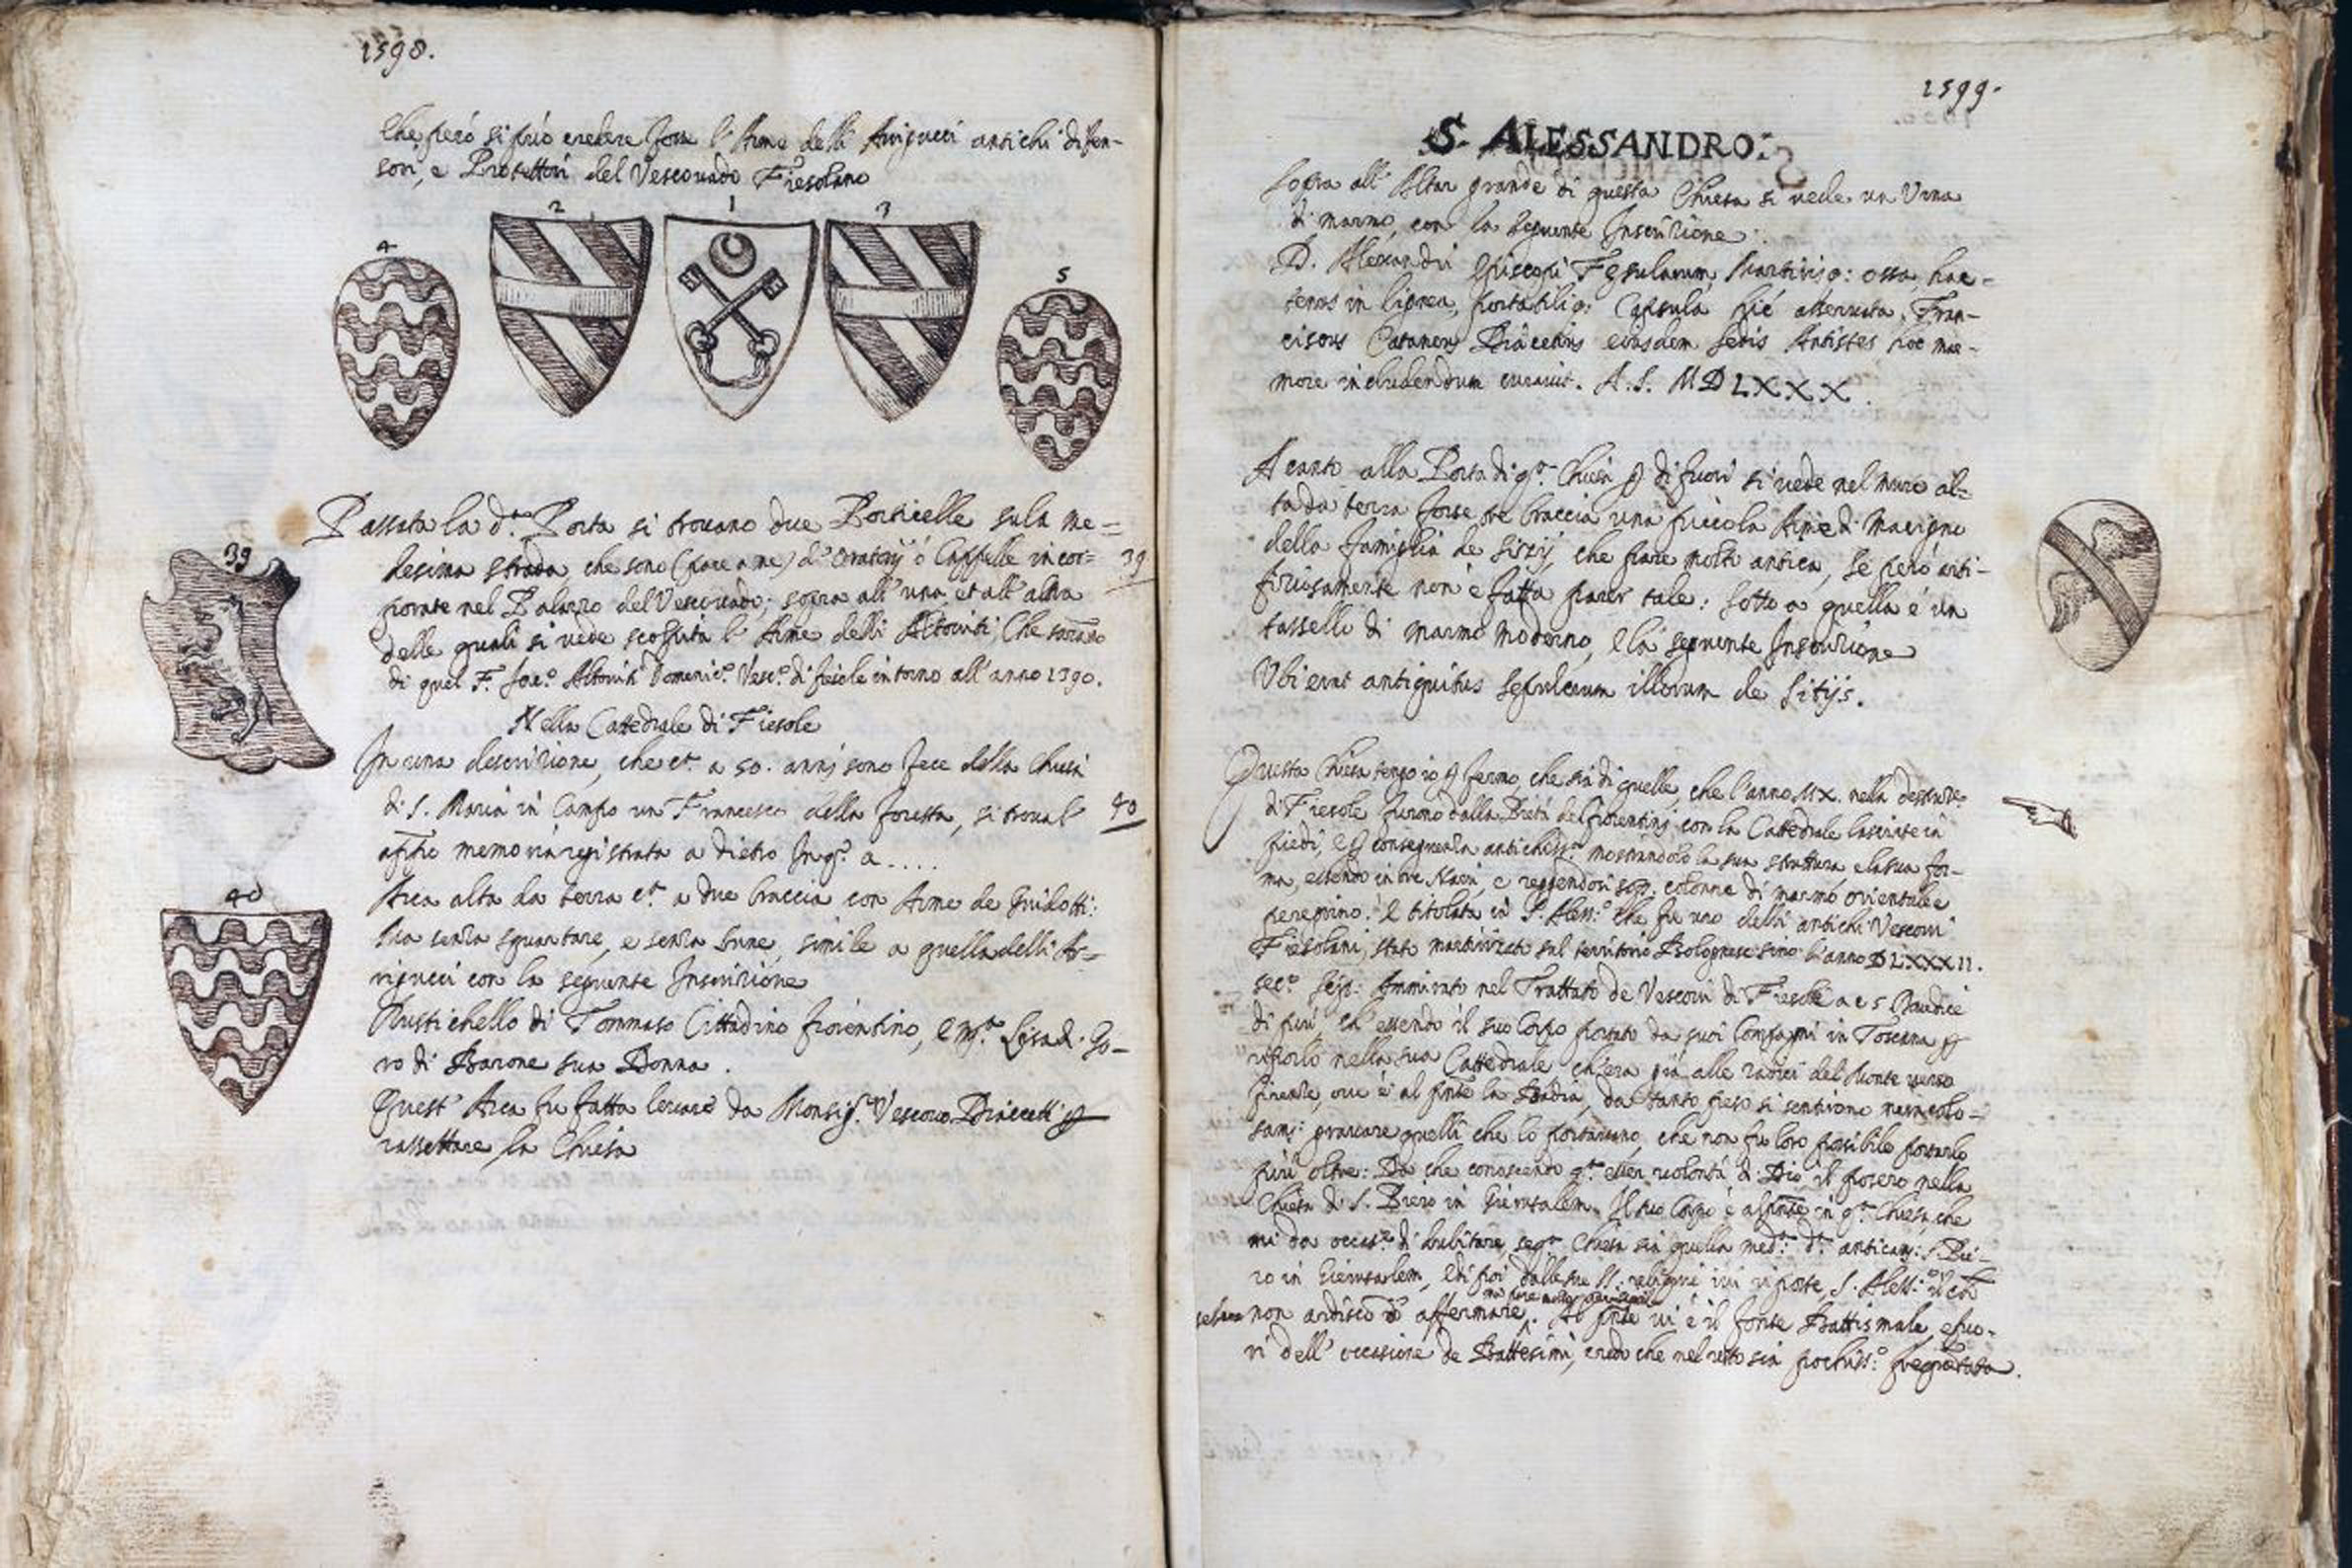 1598.
che però si può credere fosse l'Arme delli Arigucci antichi difen-
sori, e Protettori del Vescovado Fiesolano
4 2 1 3 5
Passata la d.ta Porta si trovano due Porticelle sula me=
desima strada, che sono (pare a me) d'Oratorij ò Cappelle incor=
39
porate nel Palazzo del Vescovado; sopra all'una, et all'altra
39
delle quali si vede scolpita l'Arme delli Altoviti, che
di quel F. Altoviti Domenic.o Vesc.o di fiesole intorno all'anno 1390.
Nella Cattedrale di Fiesole
In una descrizione, che c.a a 50. anni sono fece della Chiesa
di S. Maria in Campo un Francesco della foresta, si trova l'
40
memoria registrata a dietro a....
40
Arca alta da terra c.a a due braccia con Arme de Guidotti:
ma senza squartare, e senza Lune, simile a quella delli Ar=
rigucci con la seguente Inscrizione
Rustichello di Tommaso Cittadino fiorentino, e Lisa di Go-
ro di Barone sua Donna.
Quest'Arca fu fatta levare da Monsig.r Vescovo Diacceti p
rassettare la Chiesa
1599.
S. ALESSANDRO.
Sopra all'Altar grande di questa Chiesa si vede un Urna
di marmo, con la seguente Inscrizione:
D. Alexandri Episcopi Fesularum, Martirisq: ossa, hac-
tenus in lignea, portatiliq: Capsula hic asservata, Fran-
ciscus Cataneus Diacetius eiusdem sedis Antistes hoc mar-
more includendum curavit. A.S. MDLXXX.
A canto alla Porta di q.ta Chiesa p di fuori si vede nel muro al=
ta da terra forse tre braccia una piccola Arme di Macigno
della famiglia de Sizij, che pare molto antica, se però arti-
fiziosamente non è fatta parer tale: sotto a quella è un
tassello di marmo moderno, e la seguente Inscrizione
Ubi erat antiquitus sepulcrum illorum de Sitijs.
Questa Chiesa tengo io p fermo, che sia di quelle, che l'anno MX. nella
di Fiesole furono dalla Pietà de fiorentini con la Cattedrale lasciate in
piedi, e p conseguenza mostrandolo la sua struttura e la sua for-
ma, essendo in tre Navi, e reggendosi colonne di marmo orientale e
peregrino. È titolata in S. Aless.o che fu uno delli antichi Vescovi
Fiesolani, stato martirizato sul territorio Bolognese sino l'anno DLXXXII.
sec.o Ammirato nel Trattato de Vescovi di Fiesole a c 5
di più, ch'essendo il suo Corpo portato da suoi Compagni in Toscana p
riporlo nella sua Cattedrale ch'era già alle radici del Monte verso
firenze, ove è al la Badia, da tanto peso si sentirono
gravare quelli che lo portavano, che non fu loro possibile portarlo
più oltre: Da che conoscendo q.ta esser volontà di Dio, il posero nella
Chiesa di S. Piero in Gierusalem. Il suo Corpo è in q.ta Chiesa, che
mi da di dubitare, Chiesa sia quella S. Pie-
ro in Gierusalem, dalle sue reliquie ivi riposte, S. Aless.o
non ardisco affermare. Al vi è il fonte Battismale, e fuo-
ri dell'occasione de Battesimi, credo che nel resto sia